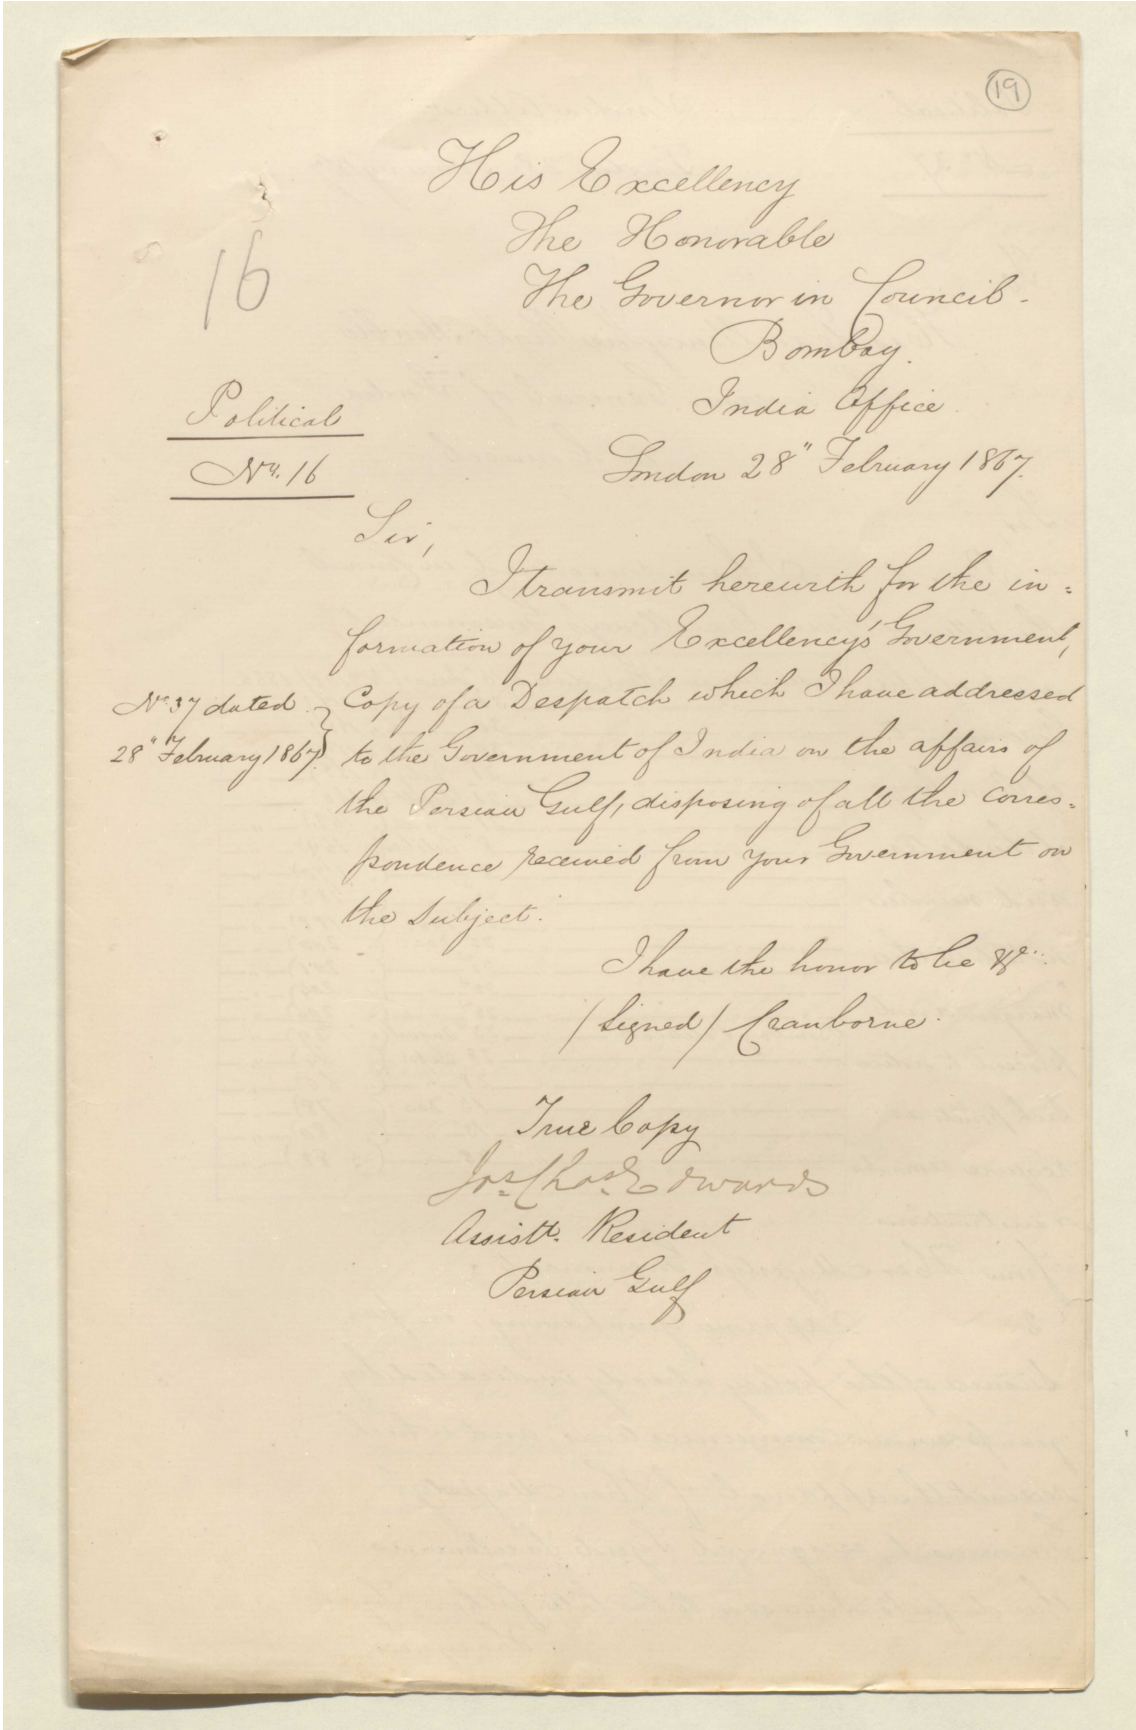 19
His Excellency
The Honorable
16
The Governor in Council.
Bombay.
Political
India Office.
No. 16
London 28" February 1867.
Sir,
I transmit herewith for the in=
formation of your Excellency's Government,
No 37 dated
28" February 1867.
Copy of a Despatch which I have addressed
to the Government of India on the affairs of
the Persian Gulf, disposing of all the corres=
pondence received from your Government on
the Subject.
I have the honor to be &c.
/Signed/ Cranborne.
True Copy
Jas. Chas. Edwards
Assistt. Resident
Persian Gulf